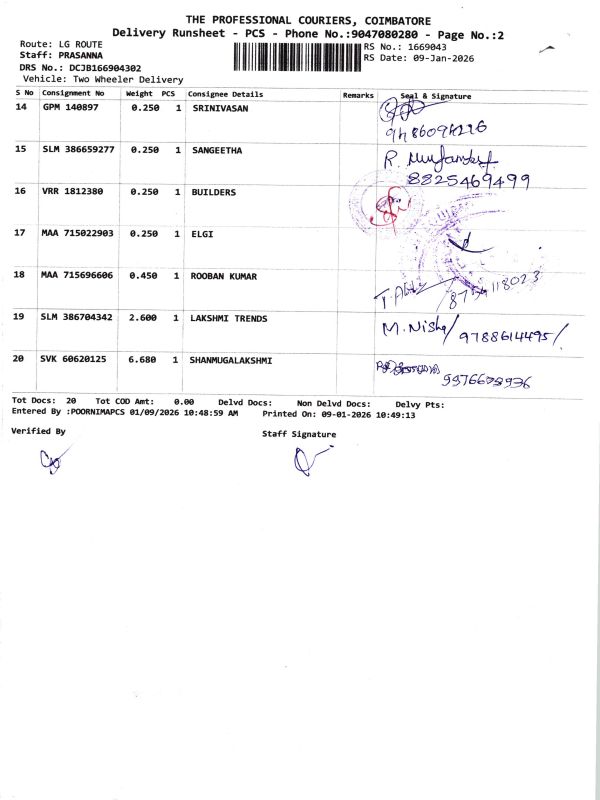 THE PROFESSIONAL COURIERS, COIMBATORE
Delivery Runsheet - PCS - Phone No.:9047080280 - Page No.:2
Route: LG ROUTE
RS No.: 1669043
Staff: PRASANNA
RS Date: 09-Jan-2026
DRS No.: DCJB166904302
Vehicle: Two Wheeler Delivery
S No Consignment No Weight PCS Consignee Details Remarks Seal & Signature
14 GPM 140897 0.250 1 SRINIVASAN
15 SLM 386659277 0.250 1 SANGEETHA
R.
8825469499
16 VRR 1812380 0.250 1 BUILDERS
17 MAA 715022903 0.250 1 ELGI
18 MAA 715696606 0.450 1 ROOBAN KUMAR
19 SLM 386704342 2.600 1 LAKSHMI TRENDS M.Nisha/ 9788614495/.
20 SVK 60620125 6.680 1 SHANMUGALAKSHMI
Tot Docs: 20 Tot COD Amt: 0.00 Delvd Docs: Non Delvd Docs: Delvy Pts:
Entered By :POORNIMAPCS 01/09/2026 10:48:59 AM Printed On: 09-01-2026 10:49:13
Verified By
Staff Signature